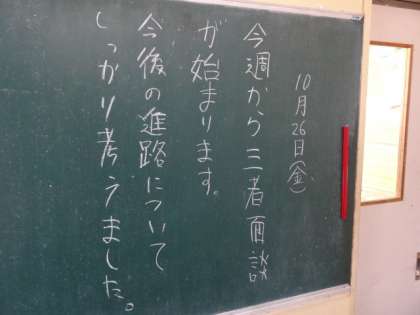 10月26日(金)
今週から三者面談
が始まります。
今後の進路について
しっかり考うました。